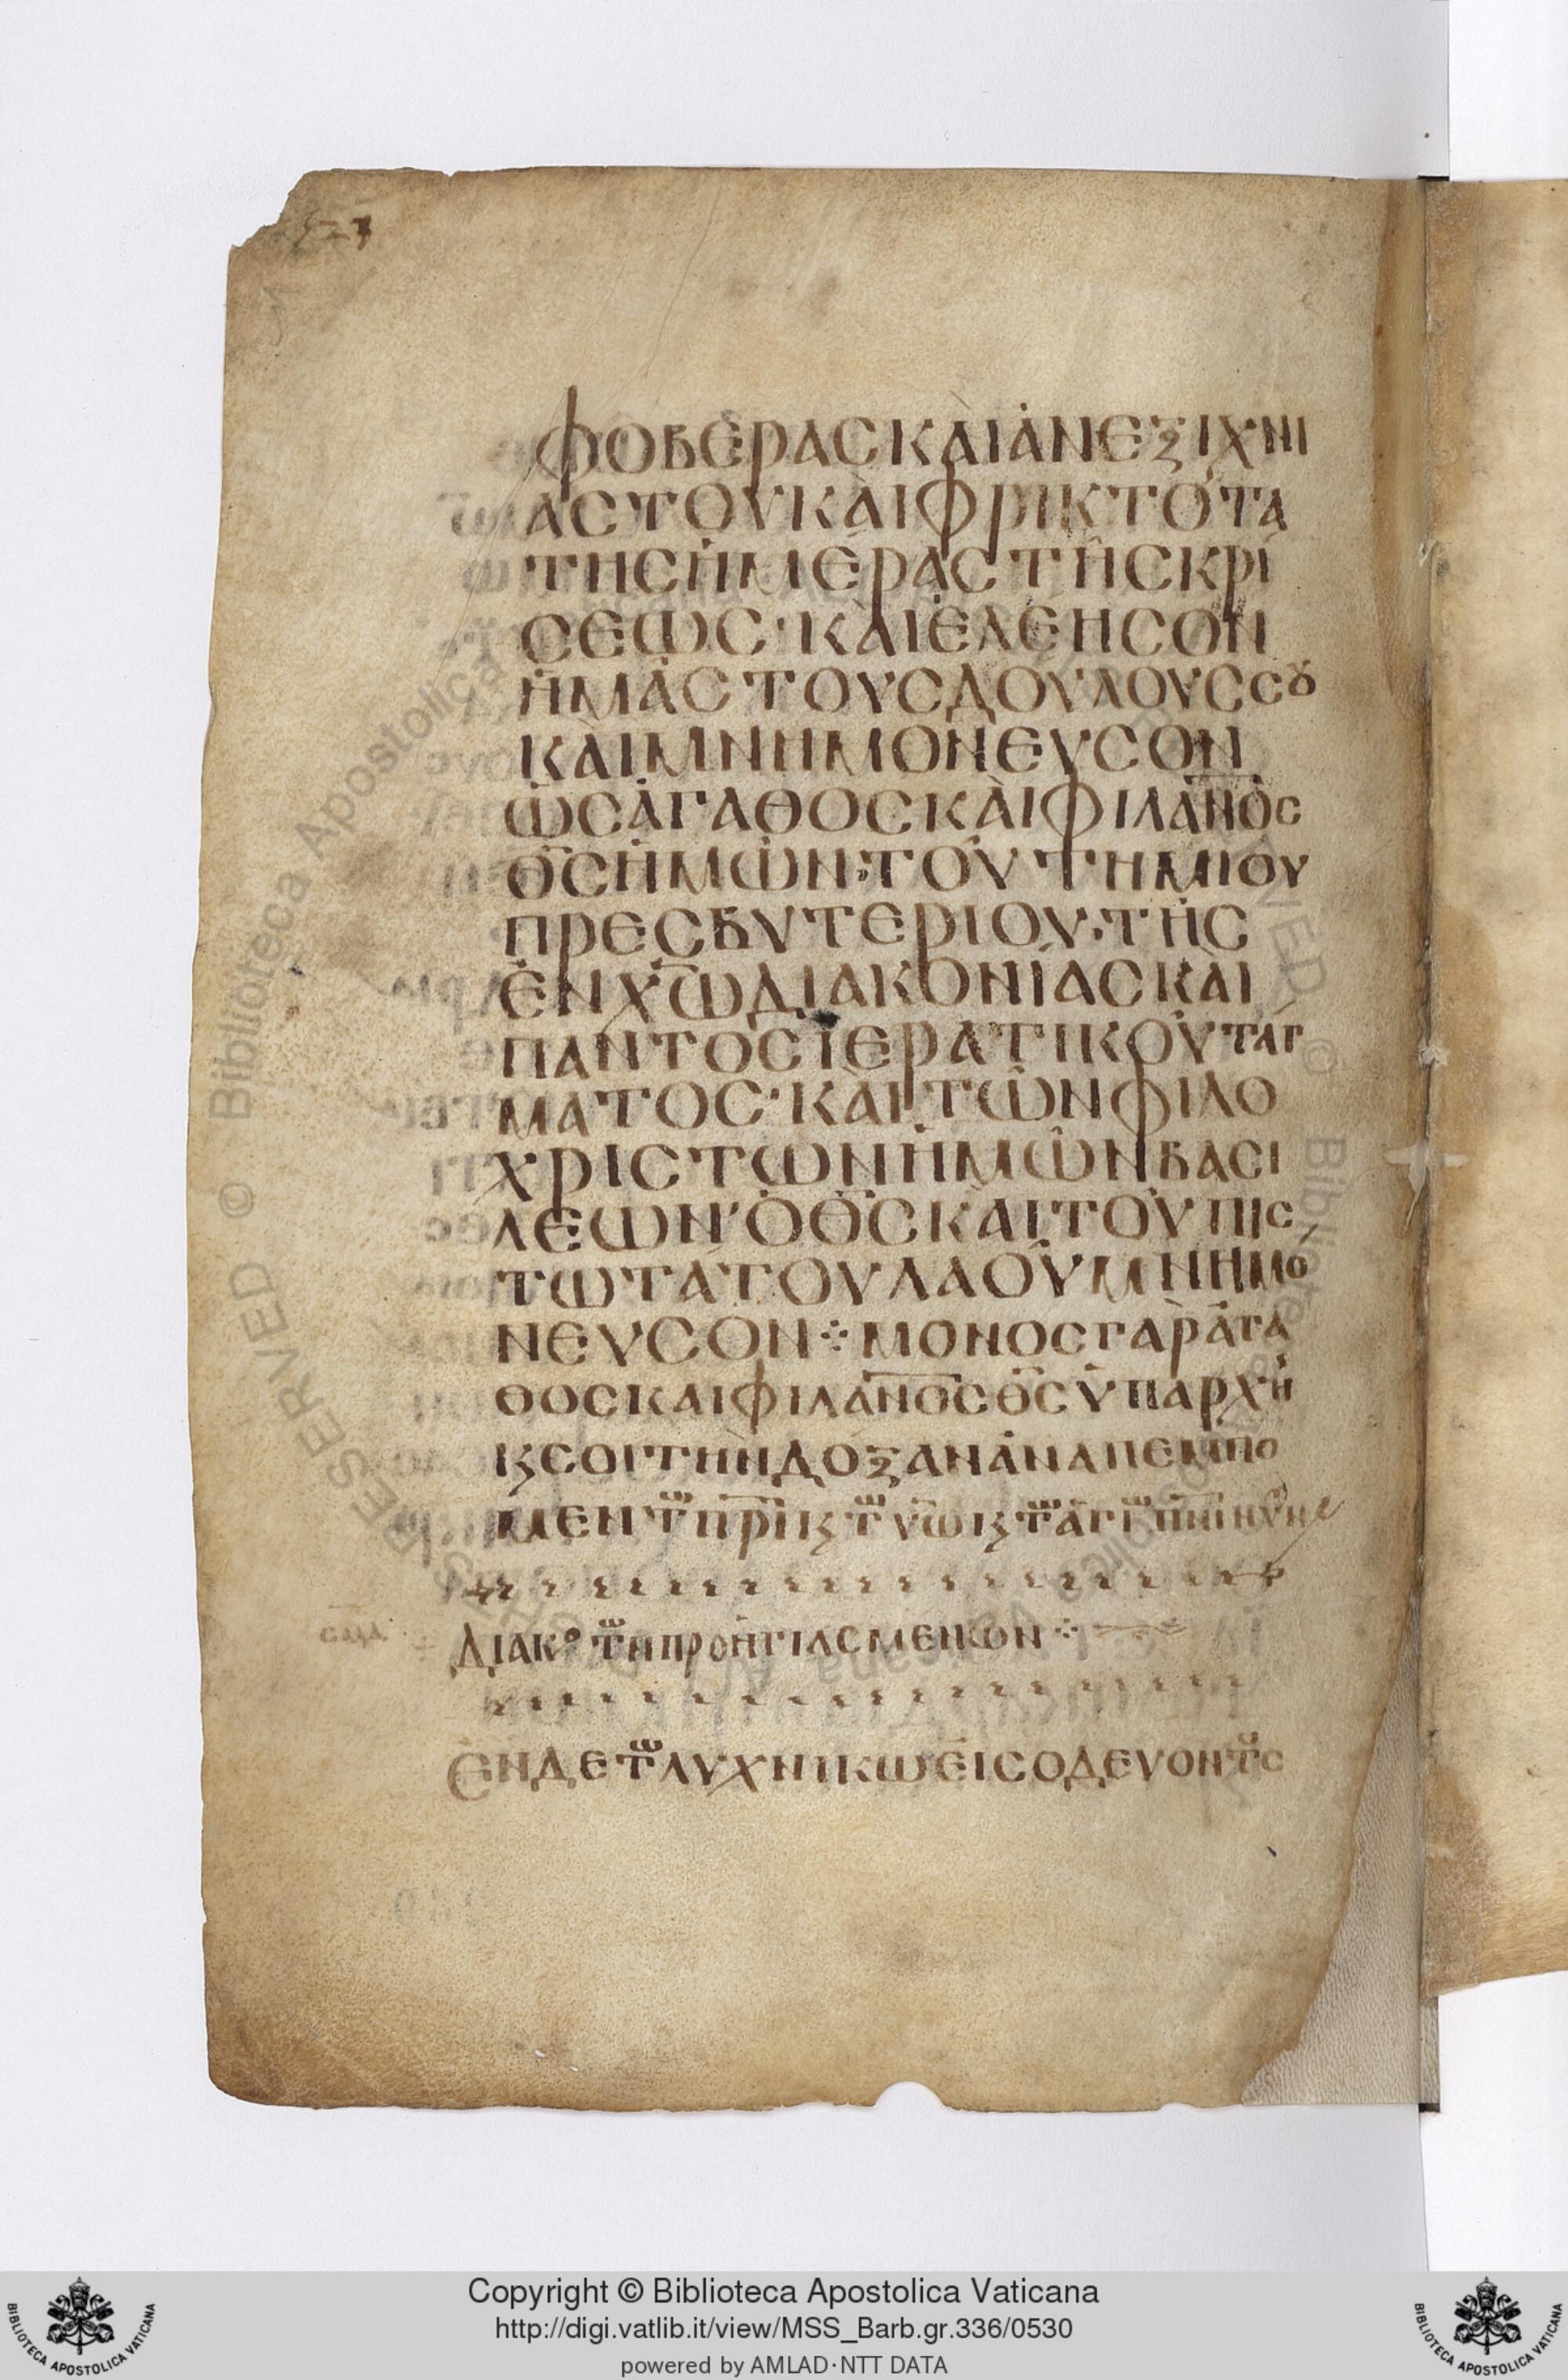 527
ΦΟΒΕΡΑΣΚΑΙΑΝΕΞΙΧΝΙ
ΑΣΤΟΥΚΑΙΦΡΙΚΤΟΤΑ
ΤΗΣΗΜΕΡΑΣΤΗΣΚΡΙ
ΣΕΩΣ·ΚΑΙΕΛΕΗΣΟΝ
ΗΜΑΣΤΟΥΣΔΟΥΛΟΥΣΣȣ
ΚΑΙΜΝΗΜΟΝΕΥΣΟΝ
ΩΣΑΓΑΘΟΣΚΑΙΦΙΛΑΝΟΣ
ΘΣΗΜΩΝ·ΤΟΥΤΗΜΙΟΥ
ΠΡΕΣΒΥΤΕΡΙΟΥ·ΤΗΣ
ΕΝΧΩΔΙΑΚΟΝΙΑΣΚΑΙ
ΠΑΝΤΟΣΪΕΡΑΤΙΚΟΥΤΑΓ
ΜΑΤΟΣ·ΚΑΙΤΩΝΦΙΛΟ
ΧΡΙΣΤΩΝΗΜΩΝΒΑΣΙ
ΛΕΩΝ·ΟΘΣΚΑΙΤΟΥΠΙΣ
ΤΩΤΑΤΟΥΛΑΟΥΜΝΗΜΟ
ΝΕΥΣΟΝ⁘ΜΟΝΟΣΓΑΡΑΓΑ
ΘΟΣΚΑΙΦΙΛΑΝΟΣΘΣΥΠΑΡΧΗ
ϗΣΟΙΤΗΝΔΟΞΑΝΑΝΑΠΕΜΠΟ
ΜΕΝΤΩΠΡΙϗΤΩΥΩϗΤΩΑΓΙΩΠΝΙΝΥΝ
ΔΙΑΚΟΤΩΗΠΡΟΗΓΙΑΣΜΕΝΩΝ⁘
ΕΝΔΕΤΩΛΥΧΝΙΚΩΕΙΣΟΔΕΥΟΝΤΟΣ
Copyright © Biblioteca Apostolica Vaticana
http://digi.vatlib.it/view/MSS_Barb.gr.336/0530
powered by AMLAD·NTT DATA
BIBLIOTECA APOSTOLICA VATICANA
BIBLIOTECA APOSTOLICA VATICANA